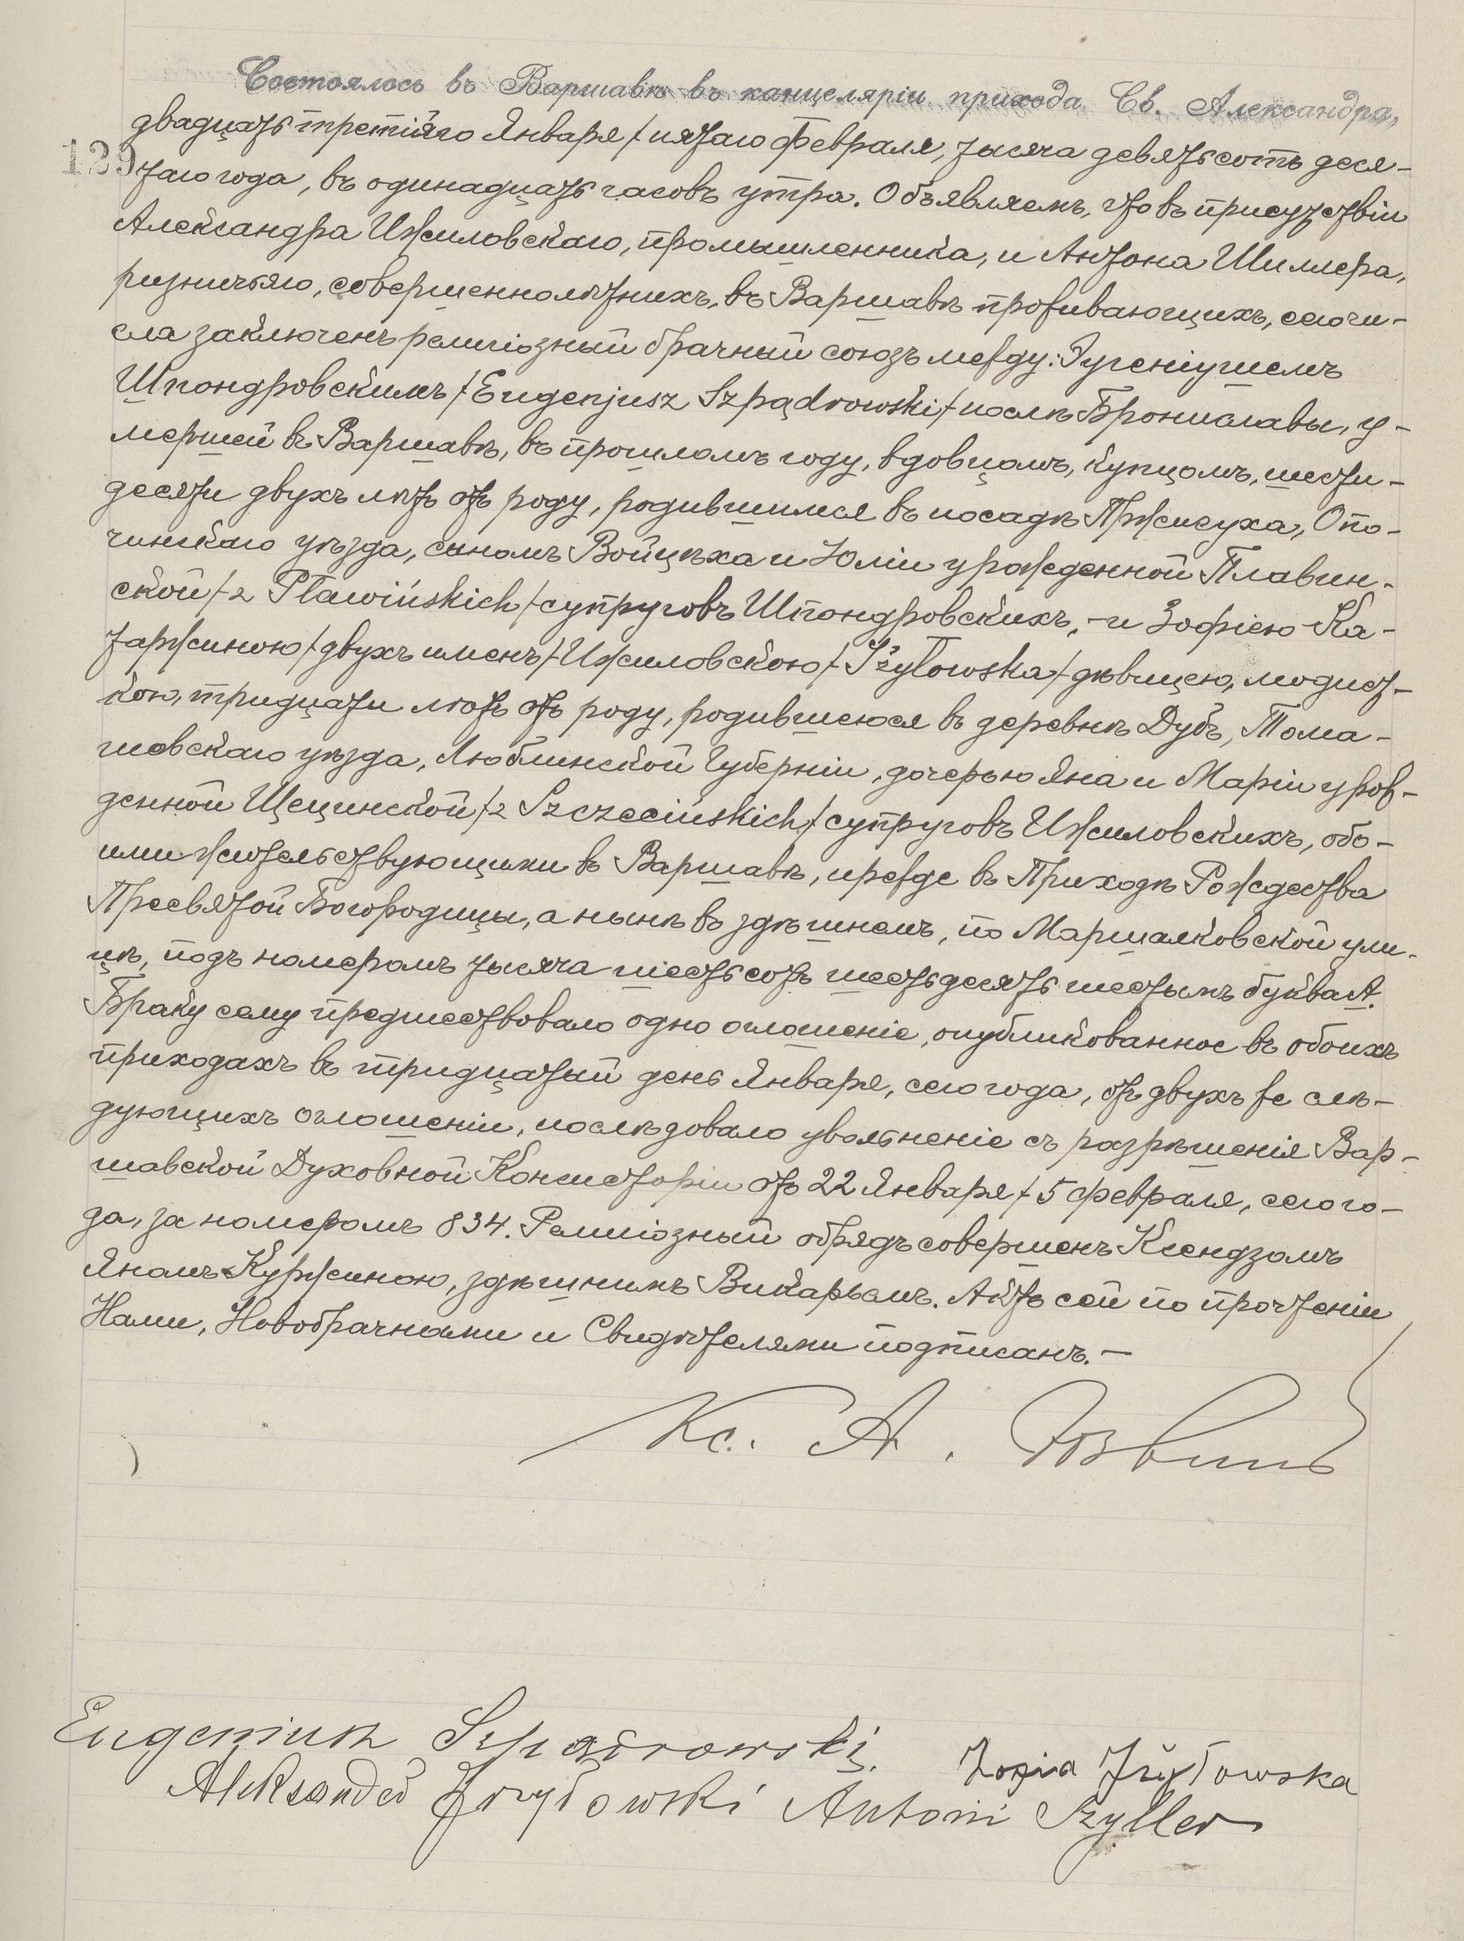 Состоялось въ Варшавѣ въ канцеляріи прихода Св. Александра,
двадцать третіяго Января / пятаго Февраля, тысяча девятьсотъ деся-
129 таго года, въ одинадцать часовъ утра. Объявляемъ, что въ присутствіи
Александра Ижиловскаго, промышленника, и Антона Шиллера,
ризничьяго, совершеннолѣтнихъ, въ Варшавѣ проживающихъ, сего чи-
сла заключенъ религіозный брачный союзъ между: Эугеніушемъ
Шпондровскимъ / Eugenjusz Szpądrowski / послѣ Брониславы, у-
мершей въ Варшавѣ, въ прошломъ году, вдовцомъ, купцомъ, шести-
десяти двухъ лѣтъ отъ роду, родившимся въ посадѣ Пржисуха, Опо-
чинскаго уѣзда, сыномъ Войцѣха и Юліи урожденной Плавин-
ской / z Pławińskich / супруговъ Шпондровскихъ, - и Зофіею Ка-
таржиною / двухъ именъ / Ижиловскою / Iżyłowska / дѣвицею, модист-
кою, тридцати лѣтъ отъ роду, родившеюся въ деревнѣ Дубъ, Тома-
шовскаго уѣзда, Люблинской Губерніи, дочерью Яна и Маріи урож-
денной Щецинской / z Szczecińskich / супруговъ Ижиловскихъ, обо-
ими жительствующими въ Варшавѣ, прежде въ Приходѣ Рождества
Пресвятой Богородицы, а нынѣ въ здѣшнемъ, по Маршалковской ули-
цѣ, подъ номеромъ тысяча шестьсотъ шестьдесятъ шестымъ буква А.
Браку сему предшествовало одно оглашеніе, опубликованное въ обоихъ
приходахъ въ тридцатый день Января, сего года, отъ двухъ же слѣ-
дующихъ оглашеніи, послѣдовало увольненіе съ разрѣшенія Вар-
шавской Духовной Консисторіи отъ 22 Января / 5 февраля, сего го-
да, за номеромъ 834. Религіозный обрядъ совершенъ Ксендзомъ
Яномъ Куржиною, здѣшнимъ Викарьемъ. Актъ сей по прочтеніи
Нами, Новобрачными и Свидѣтелями подписанъ. -
Кс. А.
Eugeniusz Szpądrowski. Zofia Iżyłowska
Aleksander Iżyłowski Antoni Szyller